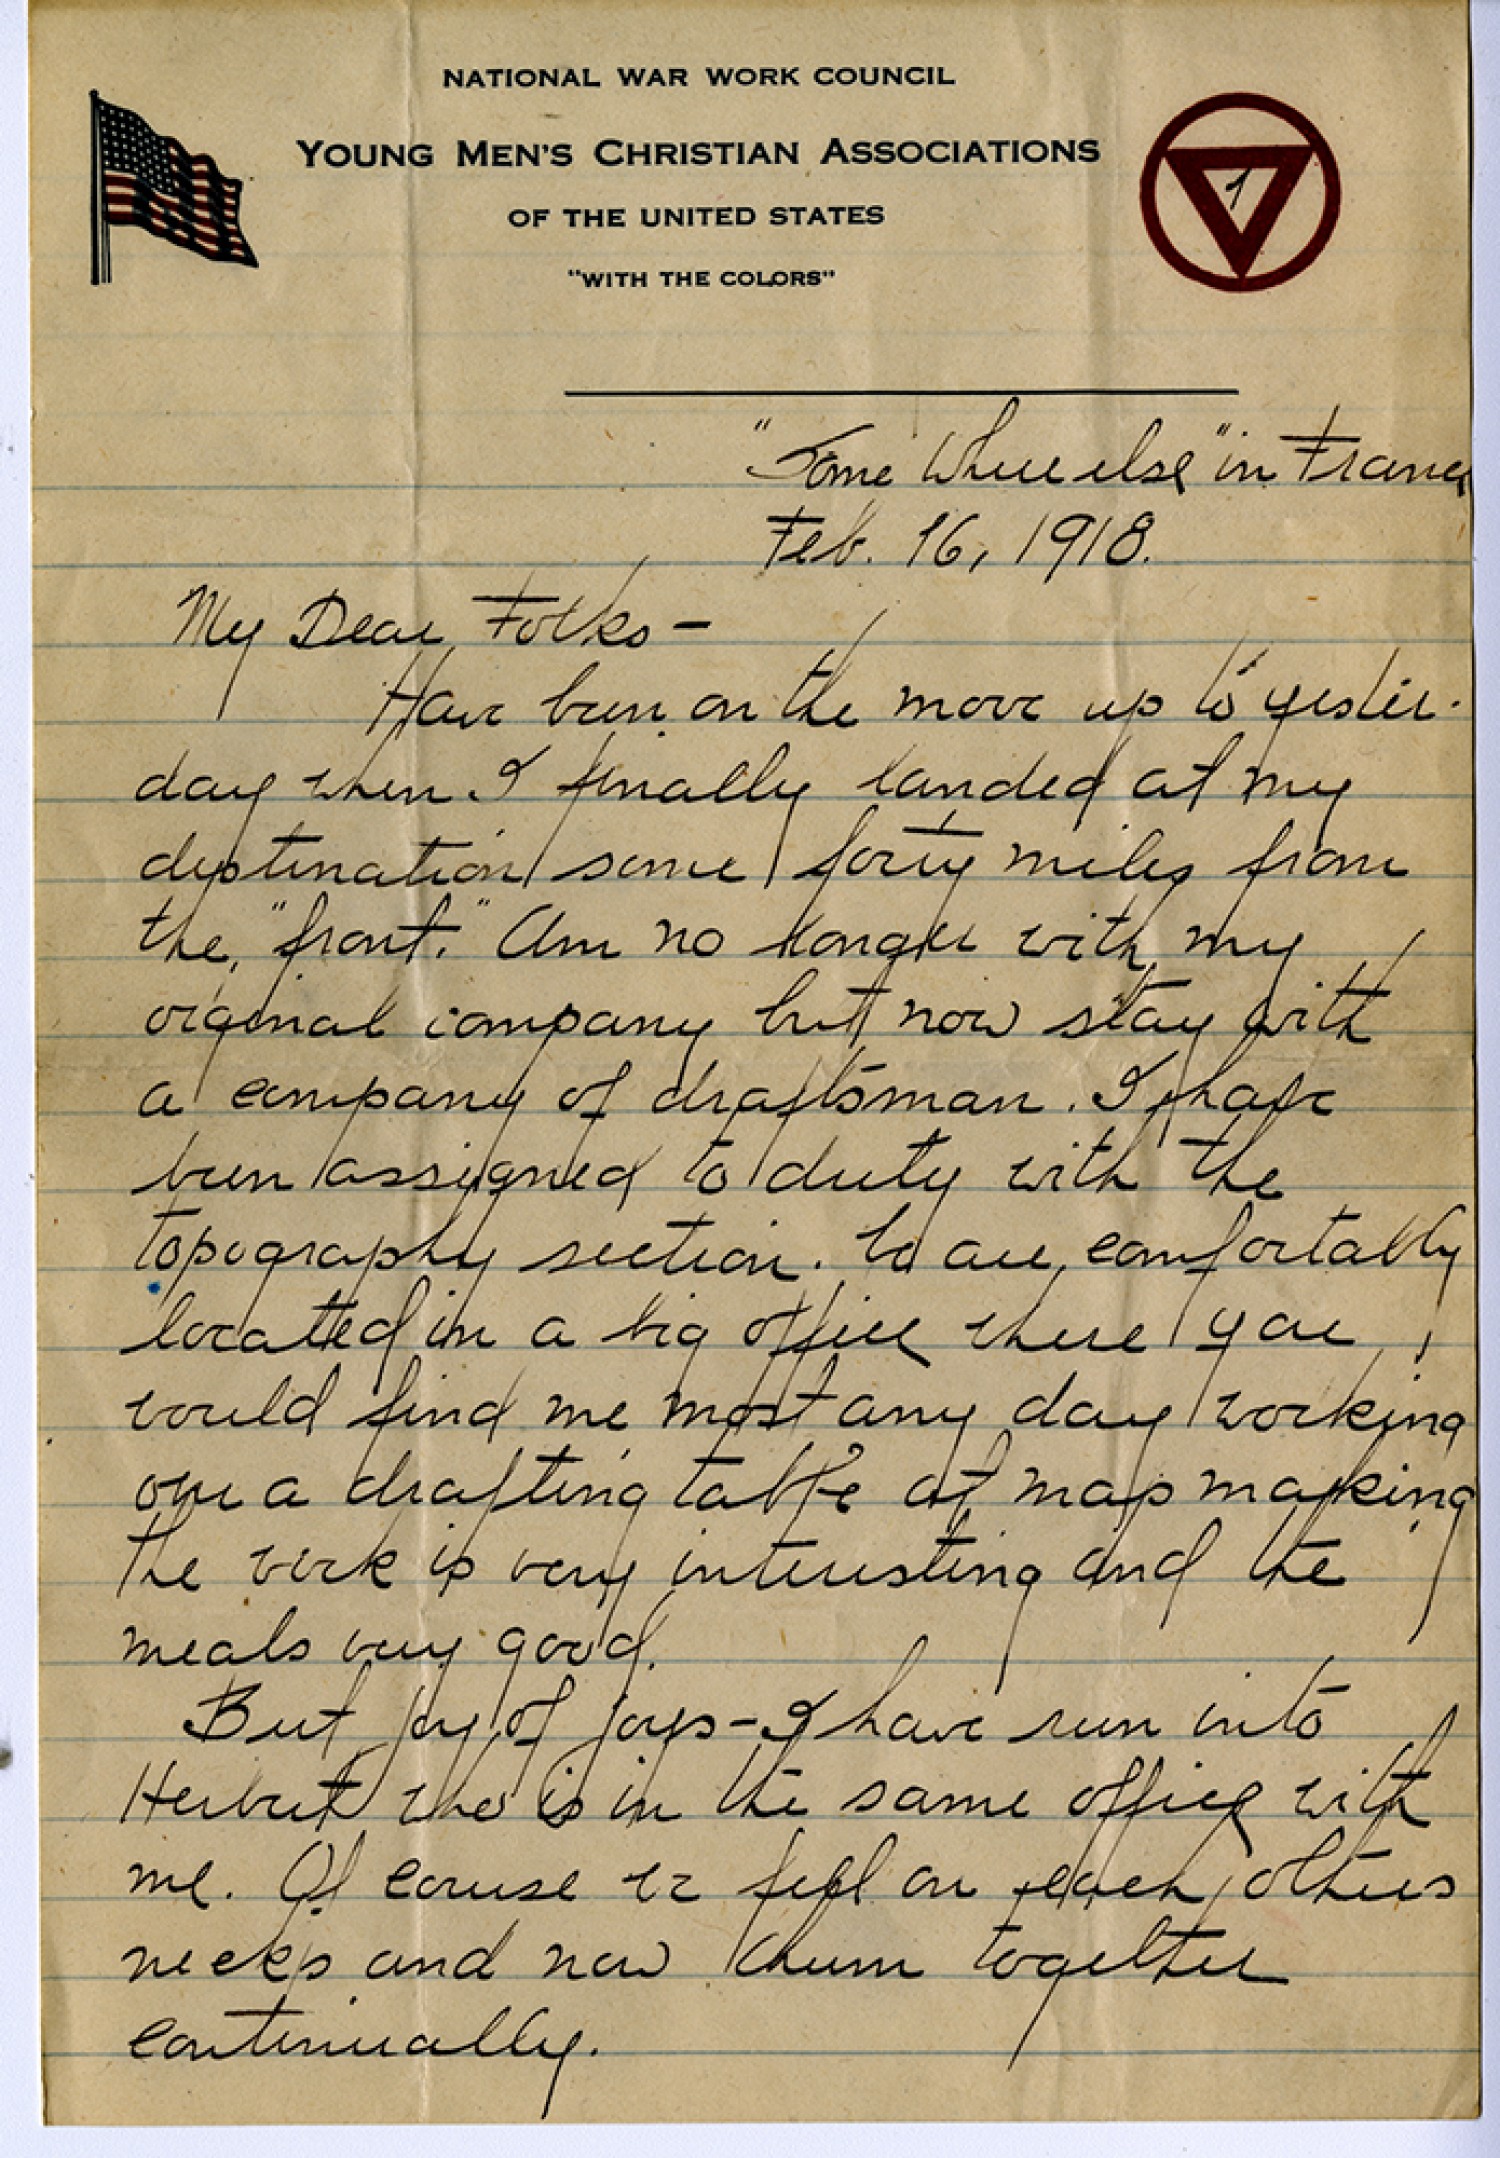 NATIONAL WAR WORK COUNCIL
YOUNG MEN'S CHRISTIAN ASSOCIATIONS
OF THE UNITED STATES
"WITH THE COLORS"
1
"Some Where else" in France
Feb. 16, 1918.
My Dear Folks -
Have been on the move up to yester-
day when I finally landed at my
destination some forty miles from
the "front." Am no longer with my
orginal company but now stay with
a company of draftsman. I have
been assigned to duty with the
topography section. We are comfortably
located in a big office where you
would find me most any day working
over a drafting table at map making
The work is very interesting and the
meals very good.
But joy of joys - I have run into
Herbert who is in the same office with
me. Of course we fell on each others
necks and now chum together
continually.